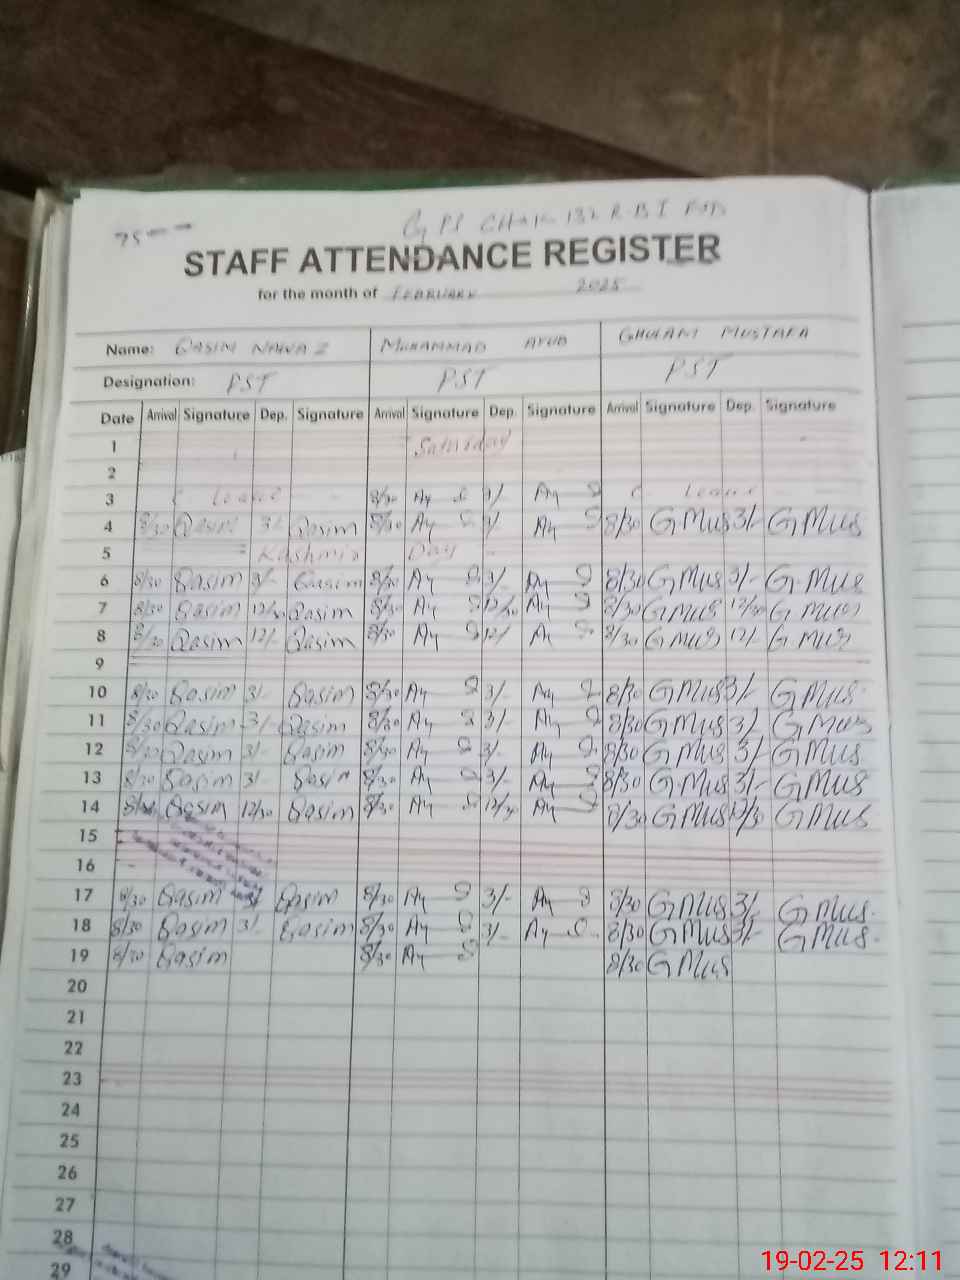 G PS CHAK 132 R B I FSD
STAFF ATTENDANCE REGISTER
for the month of FEBRUARY 2025
Name: QASIM NAWAZ MUHAMMAD AYUB GHULAM MUSTAFA
Designation: PST PST PST
Date Arrival Signature Dep. Signature Arrival Signature Dep. Signature Arrival Signature Dep. Signature
1 Saturday
2
3 Leave 8/30 Ay 3/- Ay Leave
4 8/30 Qasim 3/- Qasim 8/30 Ay 3/- Ay 8/30 G Mus 3/- G Mus
5 Kashmir Day
6 8/30 Qasim 3/- Qasim 8/30 Ay 3/- Ay 8/30 G Mus 3/- G. Mus
7 8/30 Qasim 12/30 Qasim 8/30 Ay 12/30 Ay 8/30 G Mus 12/30 G Mus
8 8/30 Qasim 12/- Qasim 8/30 Ay 12/- Ay 8/30 G Mus 12/- G. Mus
9
10 8/30 Qasim 3/- Qasim 8/30 Ay 3/- Ay 8/30 G Mus 3/- G Mus
11 8/30 Qasim 3/- Qasim 8/30 Ay 3/- Ay 8/30 G Mus 3/- G Mus
12 8/30 Qasim 3/- Qasim 8/30 Ay 3/- Ay 8/30 G Mus 3/- G Mus
13 8/30 Qasim 3/- Qasim 8/30 Ay 3/- Ay 8/30 G Mus 3/- G Mus
14 8/30 Qasim 12/30 Qasim 8/30 Ay 12/30 Ay 8/30 G Mus 12/30 G Mus
15
16
17 8/30 Qasim 3/- Qasim 8/30 Ay 3/- Ay 8/30 G Mus 3/- G Mus.
18 8/30 Qasim 3/- Qasim 8/30 Ay 3/- Ay 8/30 G Mus 3/- G Mus.
19 8/30 Qasim 8/30 Ay 8/30 G Mus
20
21
22
23
24
25
26
27
28
29
19-02-25 12:11